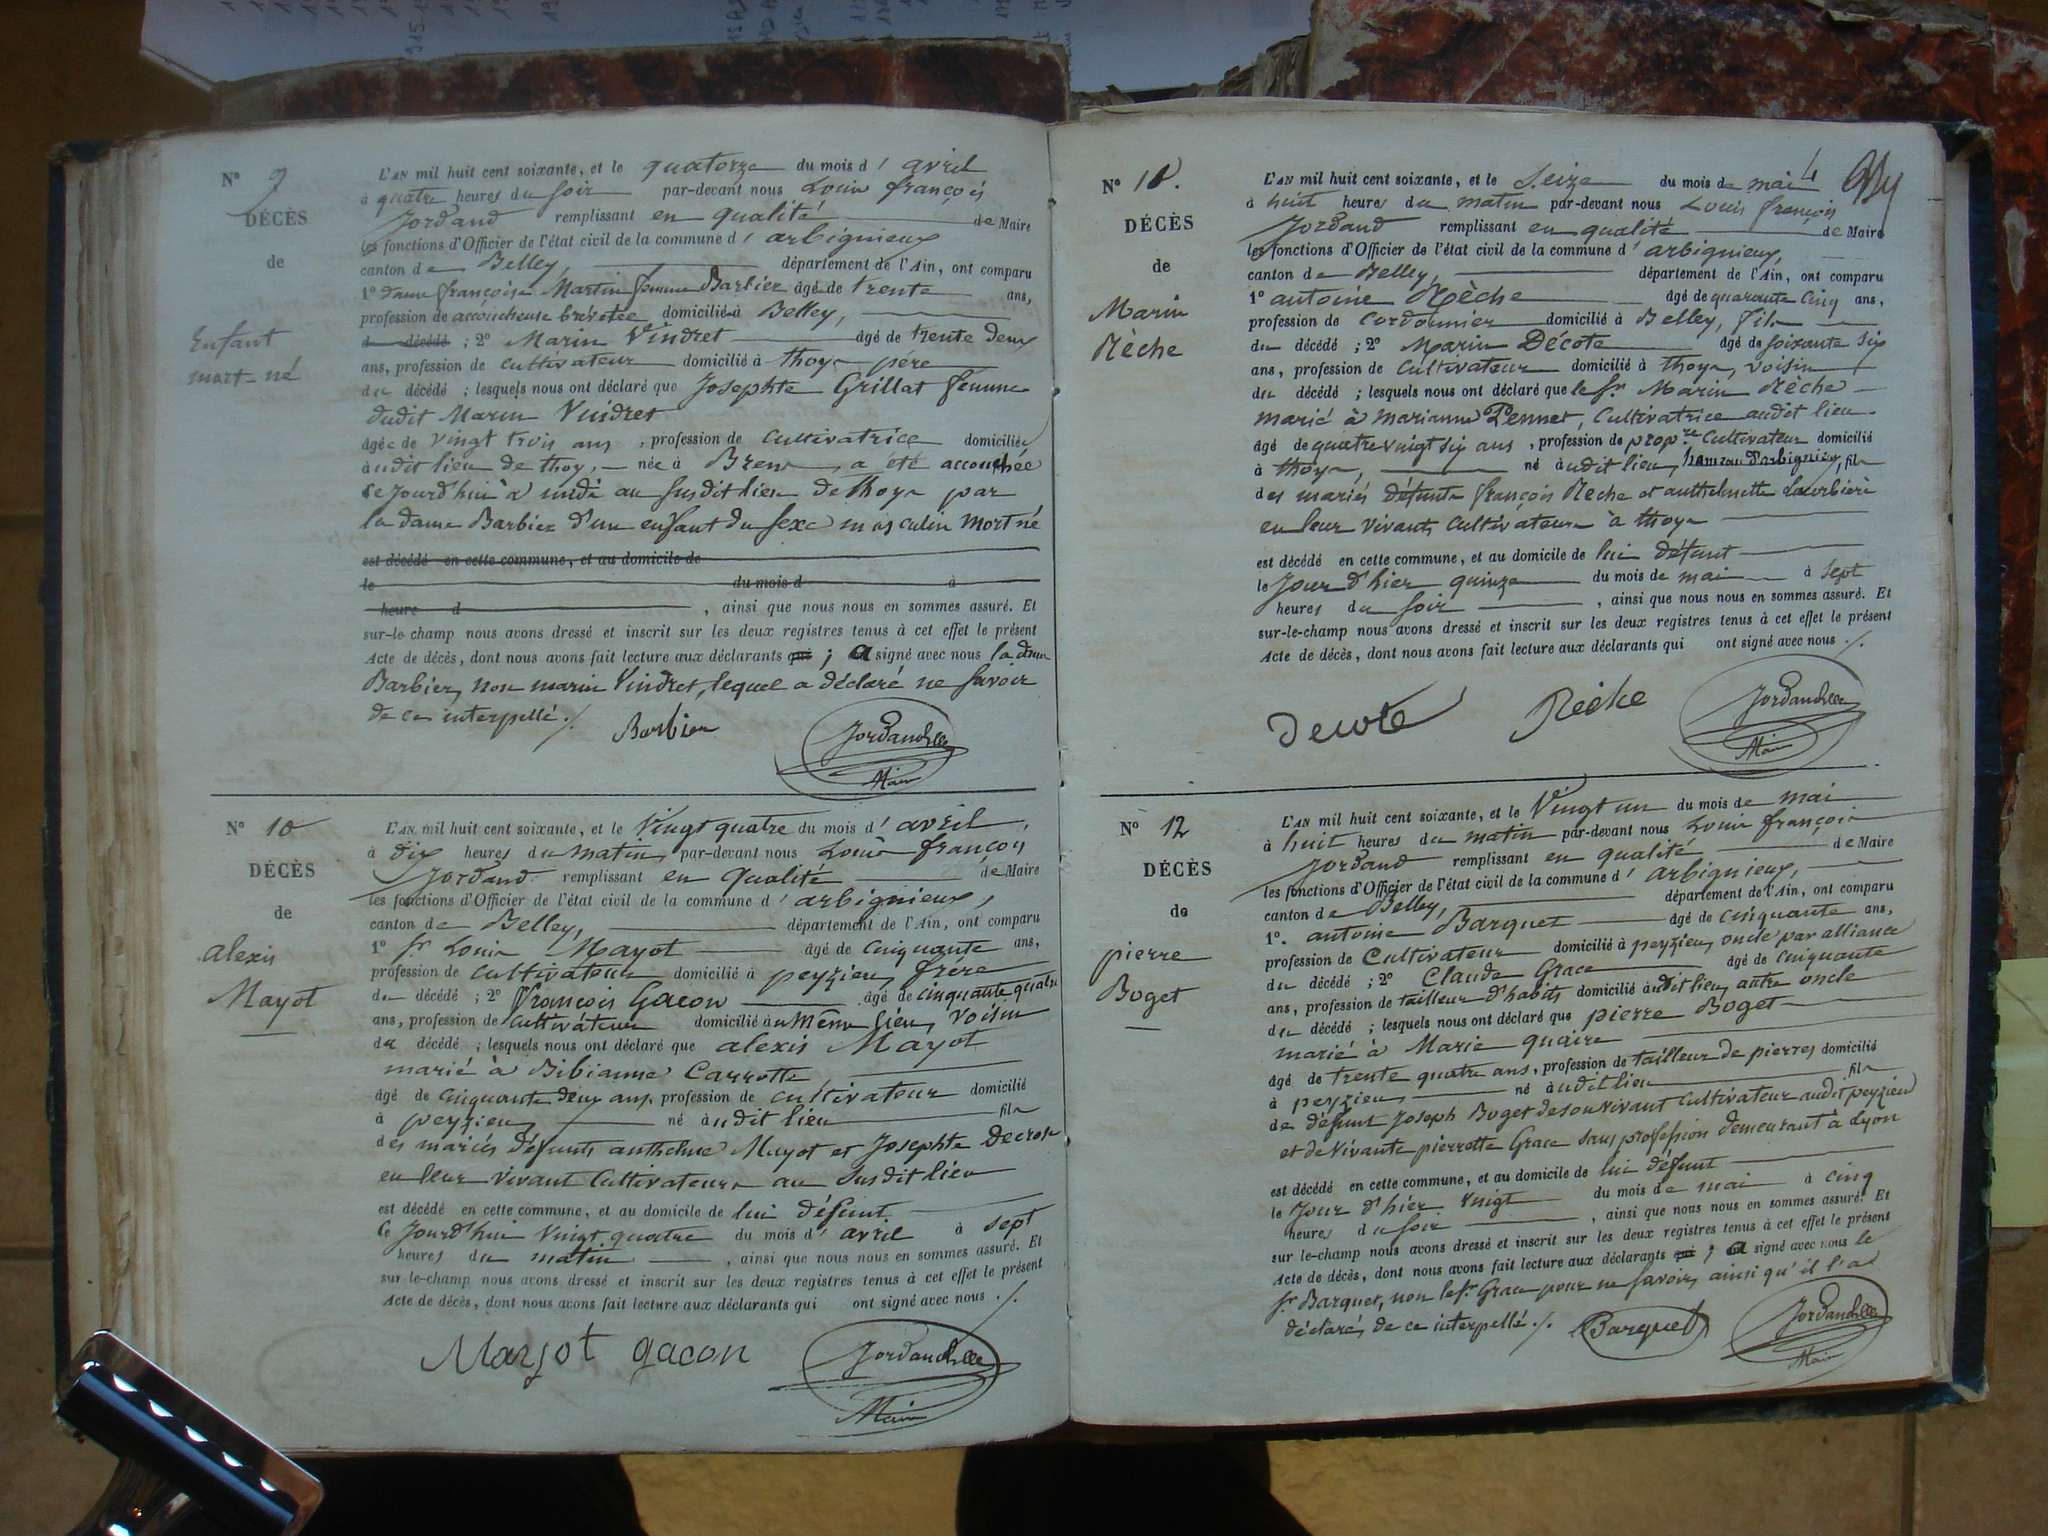 N° 9
DÉCÈS
de
Enfant
mort-né
L'AN mil huit cent soixante, et le quatorze du mois d' avril
à quatre heures du soir par-devant nous Louis françois
Jordand remplissant en qualité de Maire
les fonctions d'Officier de l'état civil de la commune d' arbignieux
canton de Belley, département de l'Ain, ont comparu
1° dame françoise Martin femme Barbier âgé de trente ans,
profession de accoucheuse brévetée domicilié à Belley,
du décédé ; 2° Marin Vindret âgé de trente deux
ans, profession de cultivateur domicilié à thoys père
du décédé ; lesquels nous ont déclaré que Josephte Grillat femme
dudit Marin Vindret
âgée de vingt trois ans, profession de cultivatrice domiciliée
audit lieu de thoy, née à Brens, a été accouchée
ce jourd'hui à midi au susdit lieu de thoys par
la dame Barbier d'un enfant du sexe masculin mort né
est décédé en cette commune, et au domicile de
le du mois d à
heure d , ainsi que nous nous en sommes assuré. Et
sur-le-champ nous avons dressé et inscrit sur les deux registres tenus à cet effet le présent
Acte de décès, dont nous avons fait lecture aux déclarants qui ; a signé avec nous la dame
Barbier, non marin Vindret, lequel a déclaré ne savoir
de ce interpellé ./.
Barbier
Maire
N° 10
DÉCÈS
de
alexis
Mayot
L'AN mil huit cent soixante, et le Vingt quatre du mois d' avril,
à dix heures du matin, par-devant nous Louis françois
Jordand remplissant en qualité de Maire
les fonctions d'Officier de l'état civil de la commune d' arbignieux,
canton de Belley, département de l'Ain, ont comparu
1° sr Louis Mayot âgé de cinquante ans,
profession de cultivateur domicilié à peyzieu, frère
du décédé ; 2° François Gacon âgé de cinquante quatre
ans, profession de cultivateur domicilié au même lieu, voisin
du décédé ; lesquels nous ont déclaré que alexis Mayot
marié à Bibianne Carrotte
âgé de cinquante deux ans, profession de cultivateur domicilié
à peyzieu, né audit lieu fils
des mariés défunts anthelme Mayot et Josephte Decroso
en leur vivant cultivateurs au susdit lieu
est décédé en cette commune, et au domicile de lui défunt
ce jourd'hui vingt quatre du mois d' avril à sept
heures du matin , ainsi que nous nous en sommes assuré. Et
sur-le-champ nous avons dressé et inscrit sur les deux registres tenus à cet effet le présent
Acte de décès, dont nous avons fait lecture aux déclarants qui ont signé avec nous ./.
Mayot gacon
Maire
N° 11.
DÉCÈS
de
Marin
Rèche
4
L'AN mil huit cent soixante, et le Seize du mois de mai
à huit heures du matin par-devant nous Louis françois
Jordand remplissant en qualité de Maire
les fonctions d'Officier de l'état civil de la commune d' arbignieux,
canton de Belley, département de l'Ain, ont comparu
1° antoine Rèche âgé de quarante cinq ans,
profession de cordonnier domicilié à Belley, fils
du décédé ; 2° Marin Décote âgé de soixante six
ans, profession de cultivateur domicilié à thoys, voisin
du décédé ; lesquels nous ont déclaré que le sr Marin Rèche
marié à marianne Pennet, cultivatrice audit lieu
âgé de quatre vingt six ans, profession de propre cultivateur domicilié
à thoys, né audit lieu, hameau d'arbignieu, fils
des mariés défunts françois Rèche et anthelmette Lacrbiere
en leur vivants cultivateurs à thoys
est décédé en cette commune, et au domicile de lui défunt
le jour d'hier quinze du mois de mai à sept
heures du soir , ainsi que nous nous en sommes assuré. Et
sur-le-champ nous avons dressé et inscrit sur les deux registres tenus à cet effet le présent
Acte de décès, dont nous avons fait lecture aux déclarants qui ont signé avec nous ./.
Decote Rèche
Maire
N° 12
DÉCÈS
de
pierre
Boget
L'AN mil huit cent soixante, et le Vingt un du mois de mai
à huit heures du matin par-devant nous Louis françois
Jordand remplissant en qualité de Maire
les fonctions d'Officier de l'état civil de la commune d' arbignieux,
canton de Belley, département de l'Ain, ont comparu
1°. antoine Barquet âgé de cinquante ans,
profession de Cultivateur domicilié à peyzieu, oncle par alliance
du décédé ; 2° Claude Grace âgé de cinquante
ans, profession de tailleur d'habits domicilié audit lieu, autre oncle
du décédé ; lesquels nous ont déclaré que pierre Boget
marié à Marie quaire
âgé de trente quatre ans, profession de tailleur de pierres domicilié
à peyzieu, né audit lieu fils
de défunt Joseph Boget de son vivant cultivateur audit peyzieu
et de vivante pierrotte Grace sans profession demeurant à Lyon
est décédé en cette commune, et au domicile de lui défunt
le jour d'hier vingt du mois de mai à cinq
heures du soir , ainsi que nous nous en sommes assuré. Et
sur-le-champ nous avons dressé et inscrit sur les deux registres tenus à cet effet le présent
Acte de décès, dont nous avons fait lecture aux déclarants qui ; a signé avec nous le
sr Barquet, non le sr Grace pour ne savoir, ainsi qu'il l'a
déclaré, de ce interpellé ./. Barquet
Maire